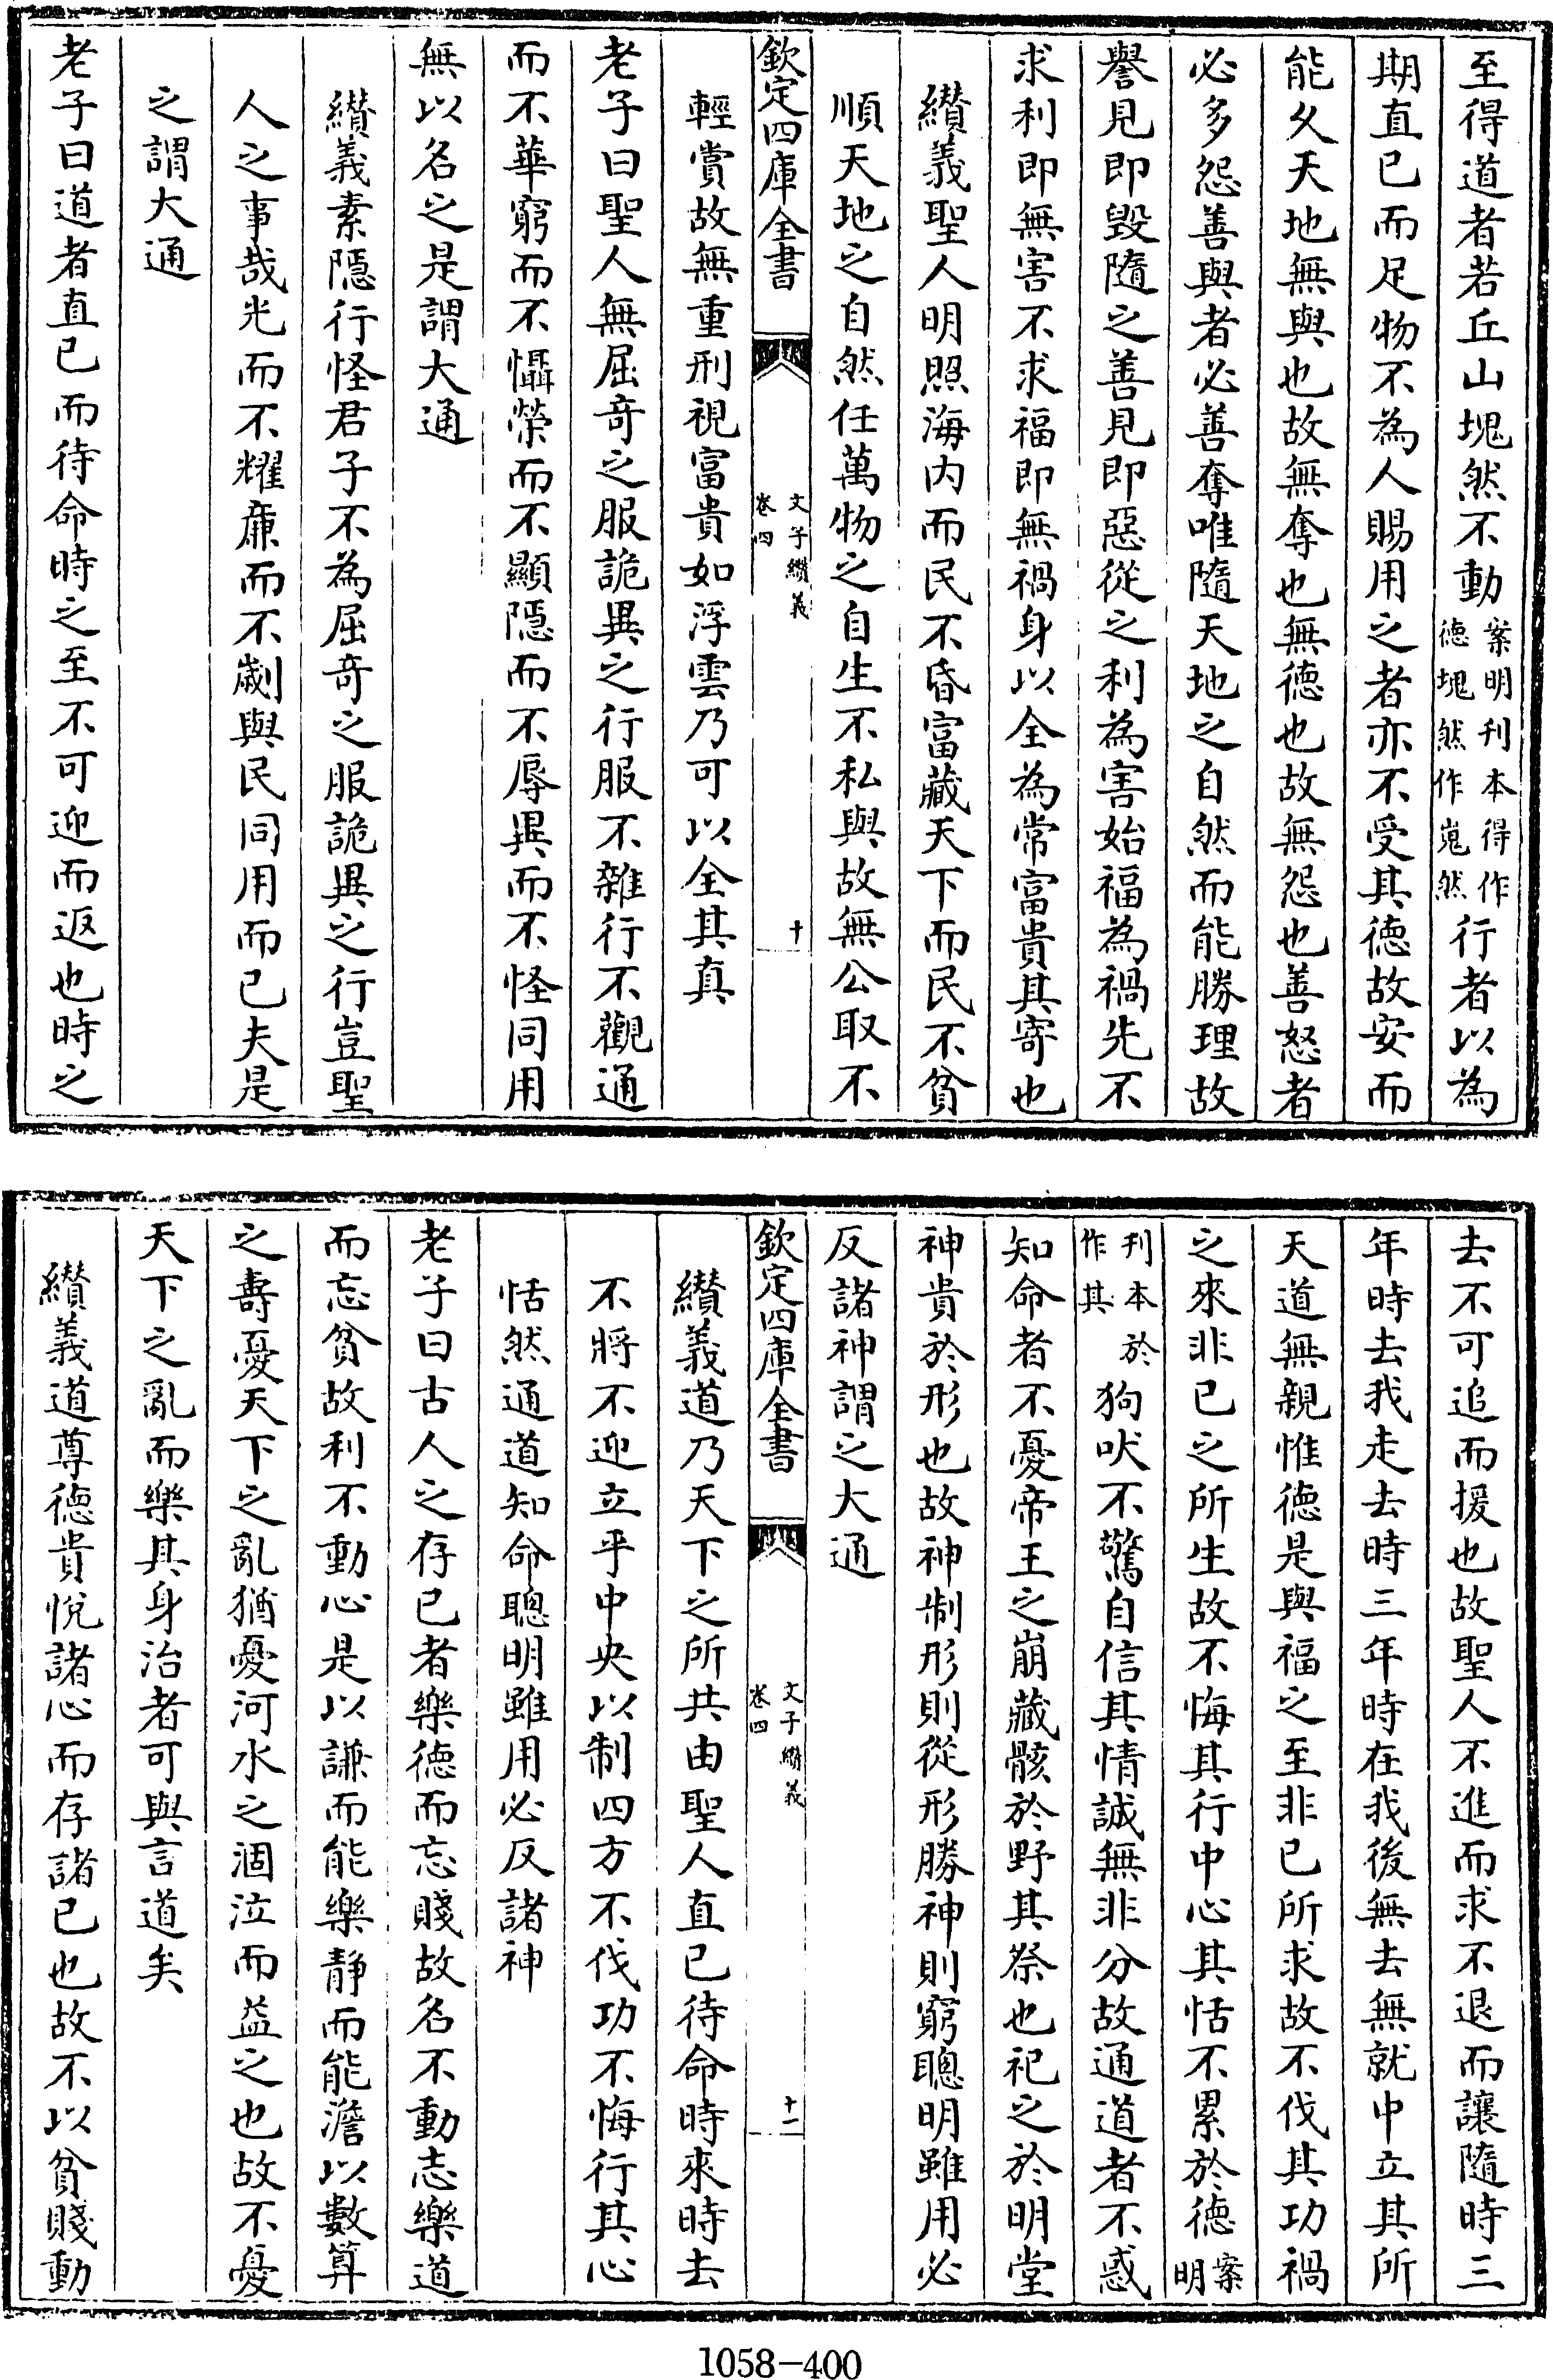 至得道者若丘山塊然不動案明刊本得作德塊然作嵬然行者以為
期直已而足物不為人賜用之者亦不受其德故安而
能久天地無與也故無奪也無德也故無怨也善怒者
必多怨善與者必善奪唯隨天地之自然而能勝理故
譽見即毀隨之善見即惡從之利為害始福為禍先不
求利即無害不求福即無禍身以全為常富貴其寄也
纘義聖人明照海内而民不昏富藏天下而民不貧
順天地之自然任萬物之自生不私與故無公取不
欽定四庫全書 文子纘義 卷四 十
輕賞故無重刑視富貴如浮雲乃可以全其真
老子曰聖人無屈奇之服詭異之行服不雜行不觀通
而不華窮而不懾榮而不顯隱而不辱異而不怪同用
無以名之是謂大通
纘義素隱行怪君子不為屈奇之服詭異之行豈聖
人之事哉光而不耀亷而不劌與民同用而已夫是
之謂大通
老子曰道者直已而待命時之至不可迎而返也時之
去不可追而援也故聖人不進而求不退而讓隨時三
年時去我走去時三年時在我後無去無就中立其所
天道無親惟德是與福之至非已所求故不伐其功禍
之來非已之所生故不悔其行中心其恬不累於德案明
刊本於作其狗吠不驚自信其情誠無非分故通道者不惑
知命者不憂帝王之崩藏骸於野其祭也祀之於明堂
神貴於形也故神制形則從形勝神則窮聰明雖用必
反諸神謂之大通
欽定四庫全書 文子纘義 卷四 十一
纘義道乃天下之所共由聖人直已待命時來時去
不將不迎立乎中央以制四方不伐功不悔行其心
恬然通道知命聰明雖用必反諸神
老子曰古人之存已者樂德而忘賤故名不動志樂道
而忘貧故利不動心是以謙而能樂靜而能澹以數算
之壽憂天下之亂猶憂河水之涸泣而益之也故不憂
天下之亂而樂其身治者可與言道矣
纘義道尊德貴悅諸心而存諸已也故不以貧賤動
1058-400